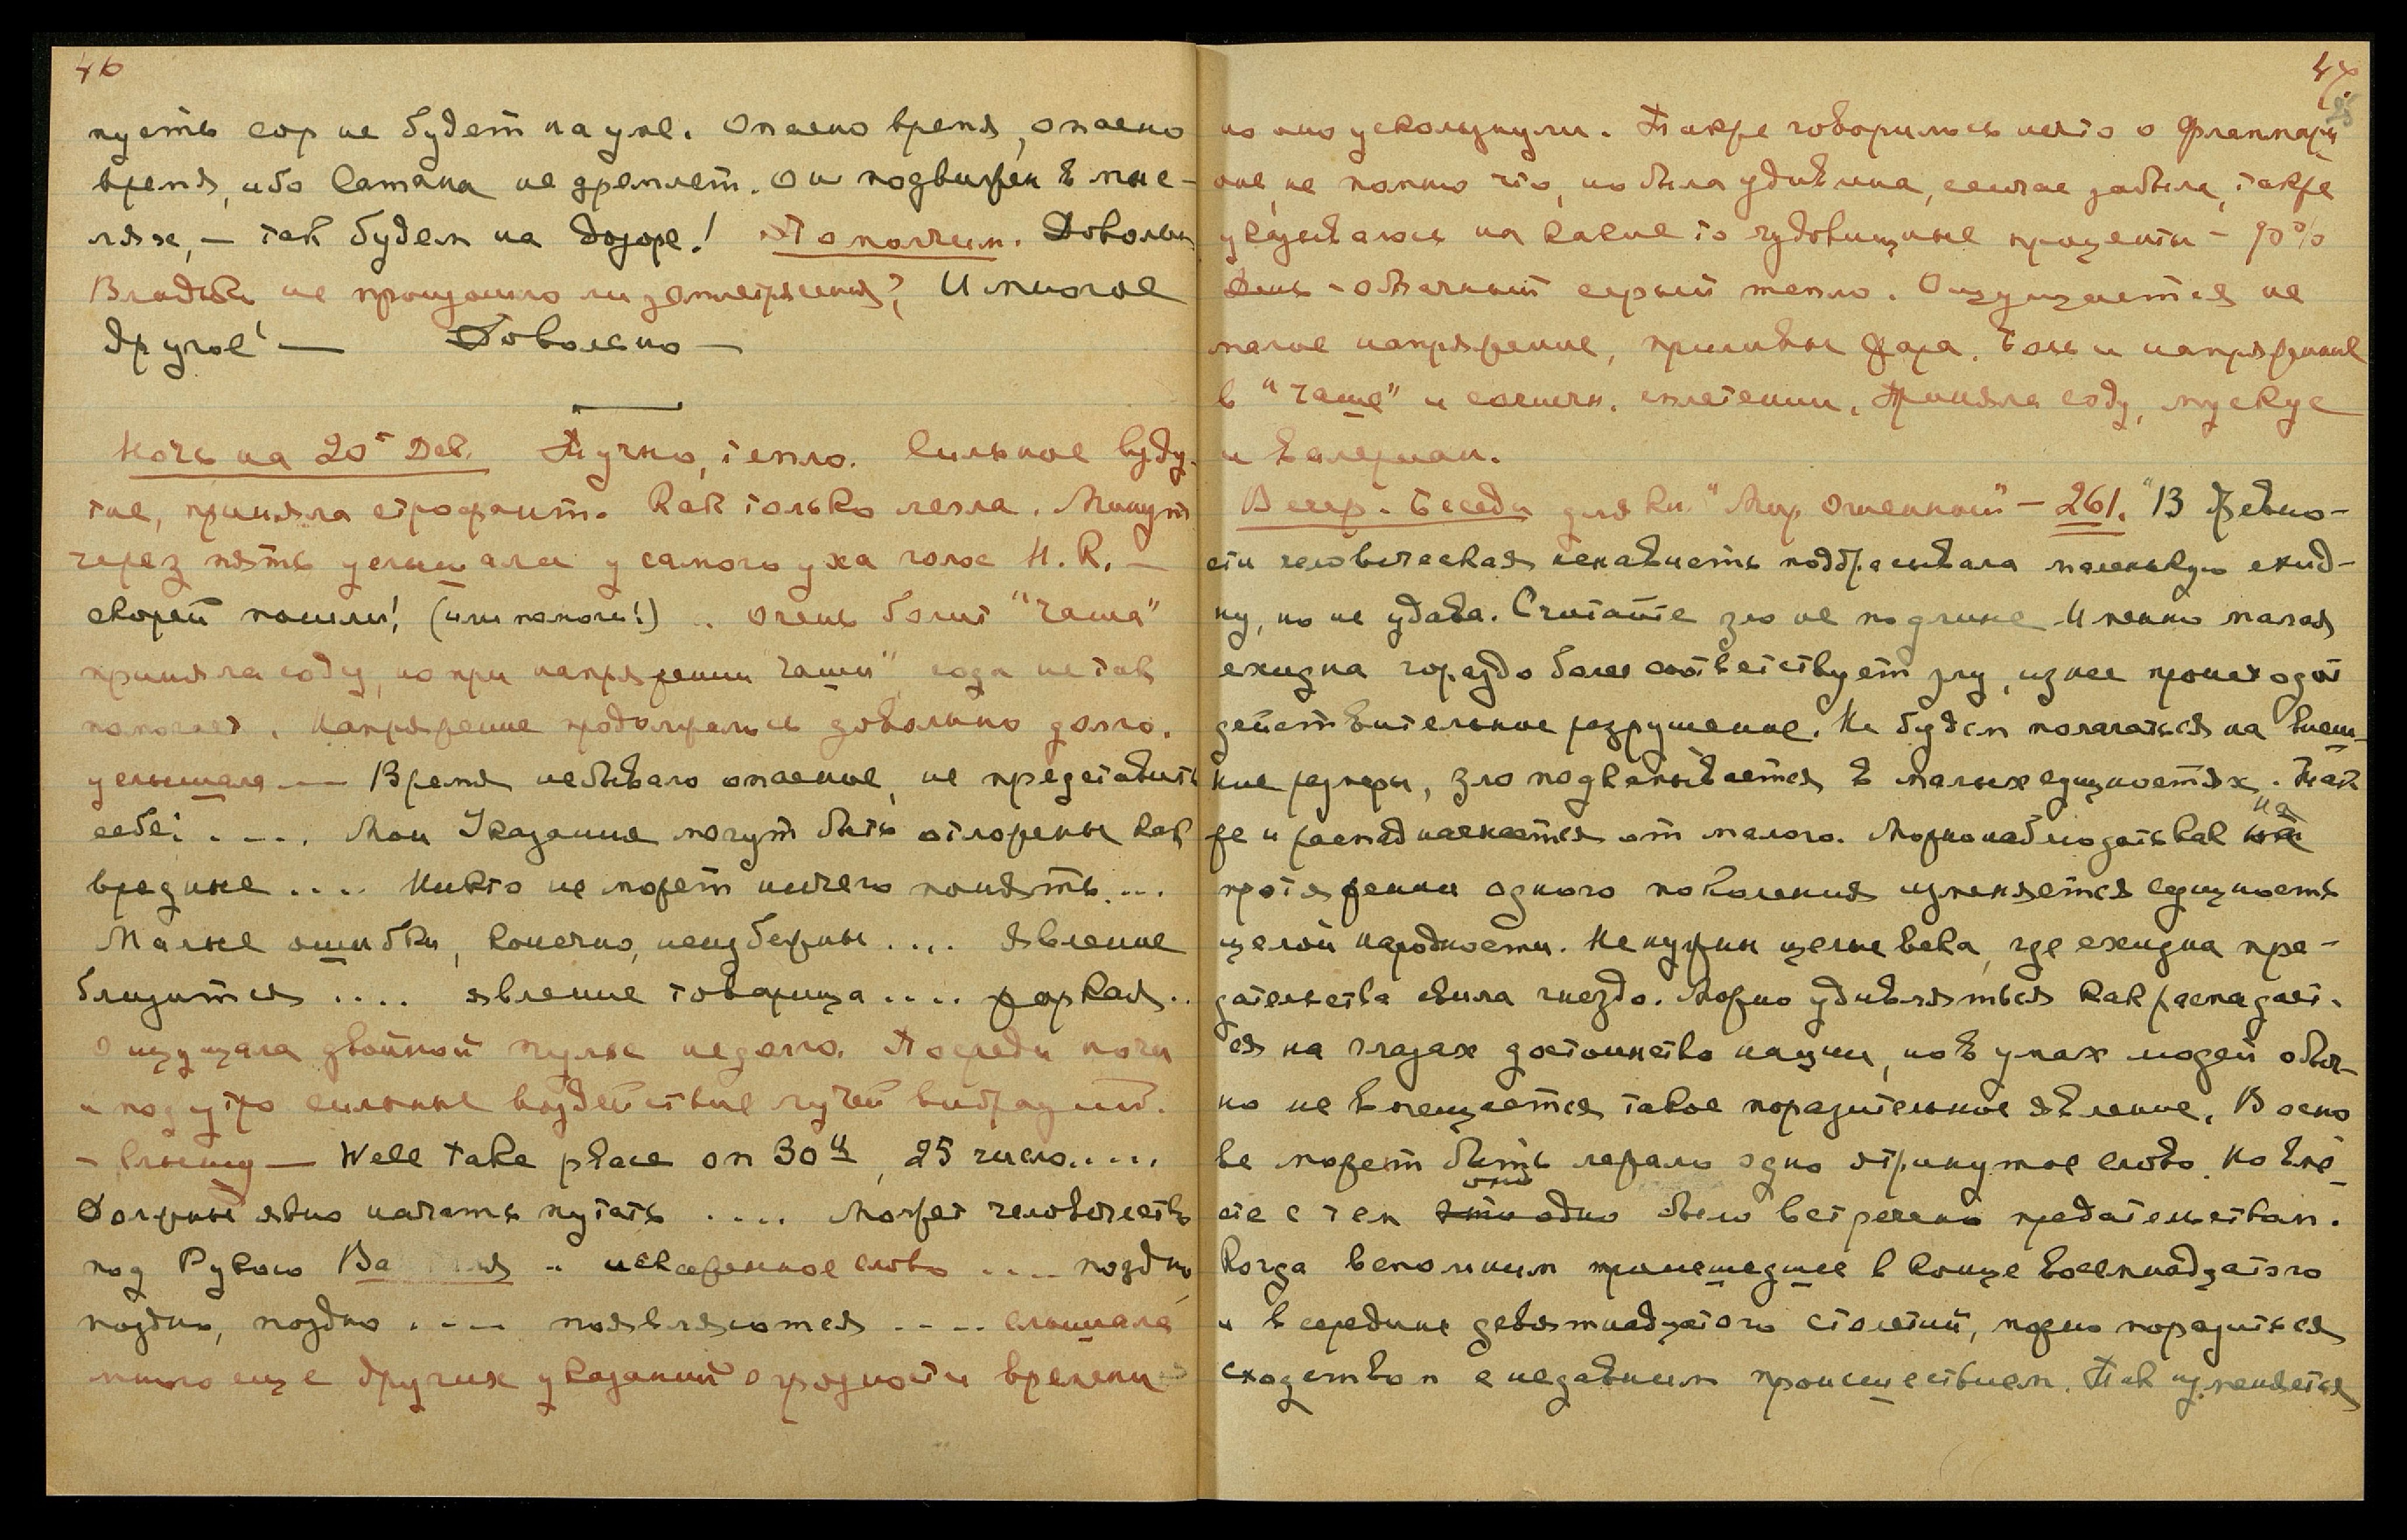 46
пусть сор не будет на уме. Опасно время, опасно
время, ибо Сатана не дремлет. Он подвижен в мыс-
лях, — так будем на дозоре! Помолчим. Довольно
Владыка, не произошло ли землетрясения? И многое
другое! — Довольно —
Ночь на 20е Дек. Тучно, тепло. Сильное вздутие,
приняла строфант. Как только легла. Минут
через пять услышала у самого уха голос Н.К. —
скорей пошли! (или помоги!) .. Очень болит "чаша"
приняла соду, но при напряжении "чаши" сода не так
помогает. Напряжение продолжалось довольно долго.
услышала — Время небывало опасное, не представить
себе! .... Мои Указания могут быть отложены как
вредные .... Никто не может ничего понять ....
Малые ошибки, конечно, неизбежны .... явление
близится .... явление товарища .... жаркая ..
Ощущала двойной пульс недолго. Посреди ночи
и под утро сильные воздействие лучей вибраций.
— Слышу — Well take place on 30th, 25 число.....
Должны явно начать путать .... Может человечество
под Рукою .. искаженное слово .... поздно,
поздно, поздно .... появляются .... слышала
много еще других указаний о грозности времени
47
но оно ускользнули. Также говорилось нечто о Фламмари-
оне, не помню что, но была удивлена, сейчас забыла, также
указывалось на какие то чудовищные проценты — 90%
День — облачный серый тепло. Ощущается не
малое напряжение, приливы жара. Боль и напряжение
в "чаше" и солнечн. сплетении. Приняла соду, мускус
и валериан.
Вечер. Беседа для кн. "Мир Огненный" — 261. "В древно-
сти человеческая ненависть подбрасывала маленькую ехид-
ну, но не удава. Считайте зло не по длине. Именно малая
ехидна гораздо более соответствует злу, из нее происходит
действительное разрушение. Не будем полагаться на внеш-
ние размеры, зло подкапывается в малых сущностях. Так
же и распад начинается от малого. Можно наблюдать как на
протяжении одного поколения изменяется сущность
целой народности. Не нужны целые века, где ехидна пре-
дательства свила гнездо. Можно удивляться как распадает-
ся на глазах достоинство нации, но в умах людей обыч-
но не вмещается такое поразительное явление. В осно-
ве может быть лежало одно отринутое слово. Но вме-
сте с тем оно одно было встречено предательством.
Когда вспомним происшедшее в конце восемнадцатого
и в середине девятнадцатого столетий, можно поразиться
сходством с недавним происшествием. Так изменяется